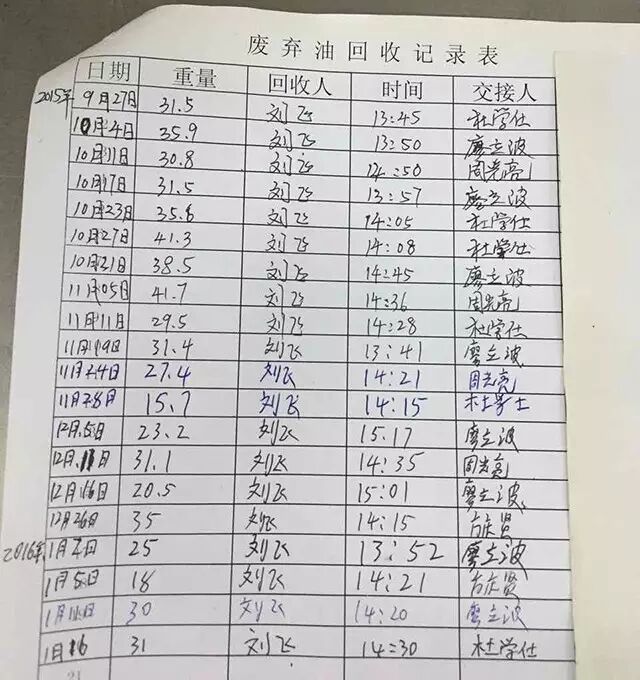 废弃油回收记录表
日期 重量 回收人 时间 交接人
2015年 9月27日 31.5 刘飞 13:45 杜学仕
10月4日 35.9 刘飞 13:50 廖立波
10月11日 30.8 刘飞 14:50 周光亮
10月17日 31.5 刘飞 13:57 廖立波
10月23日 35.6 刘飞 14:05 杜学仕
10月27日 41.3 刘飞 14:08 杜学仕
10月21日 38.5 刘飞 14:45 廖立波
11月05日 41.7 刘飞 14:36 周光亮
11月11日 29.5 刘飞 14:28 杜学仕
11月19日 31.4 刘飞 13:41 廖立波
11月24日 27.4 刘飞 14:21 周光亮
11月28日 15.7 刘飞 14:15 杜学士
12月5日 23.2 刘飞 15.17 廖立波
12月11日 31.1 刘飞 14:35 周光亮
12月16日 20.5 刘飞 15:01 廖立波
12月26日 35 刘飞 14:15
2016年 1月2日 25 刘飞 13:52 廖立波
1月5日 18 刘飞 14:21
1月11日 30 刘飞 14:20 廖立波
1月16 31 刘飞 14:30 杜学仕